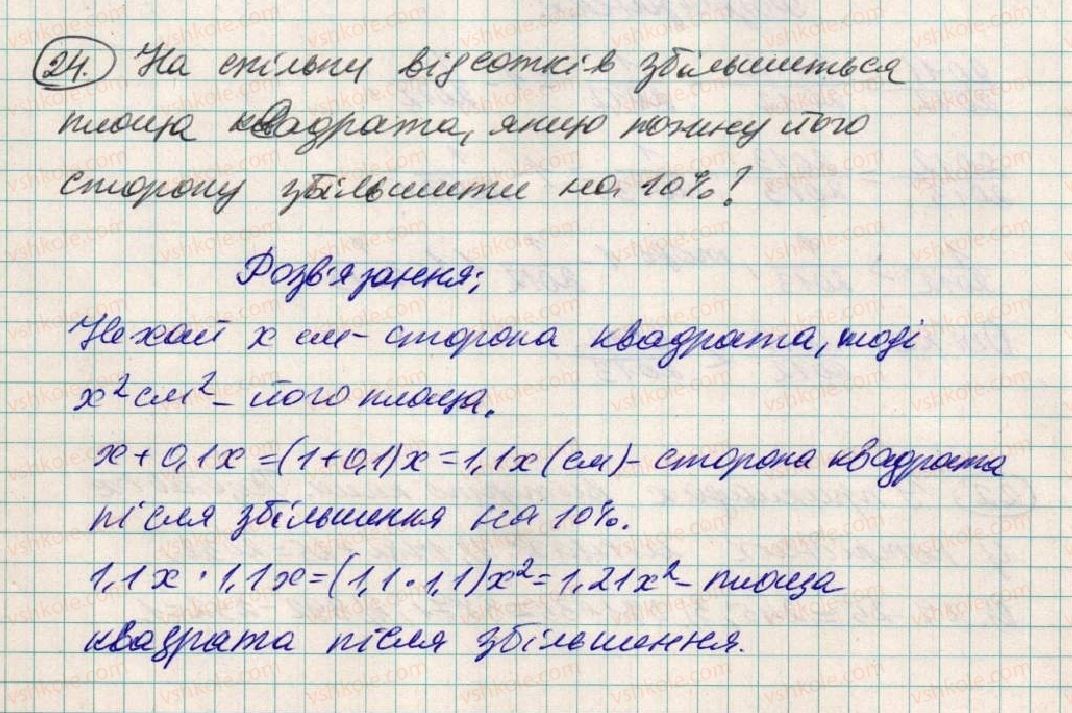 24. На скільки відсотків збільшиться
площа квадрата, якщо кожну його
сторону збільшити на 10%?
Розв'язання:
Нехай x см - сторона квадрата, тоді
x² см² - його площа.
x + 0,1x = (1+0,1)x = 1,1x (см) - сторона квадрата
після збільшення на 10%.
1,1x · 1,1x = (1,1 · 1,1)x² = 1,21x² - площа
квадрата після збільшення.